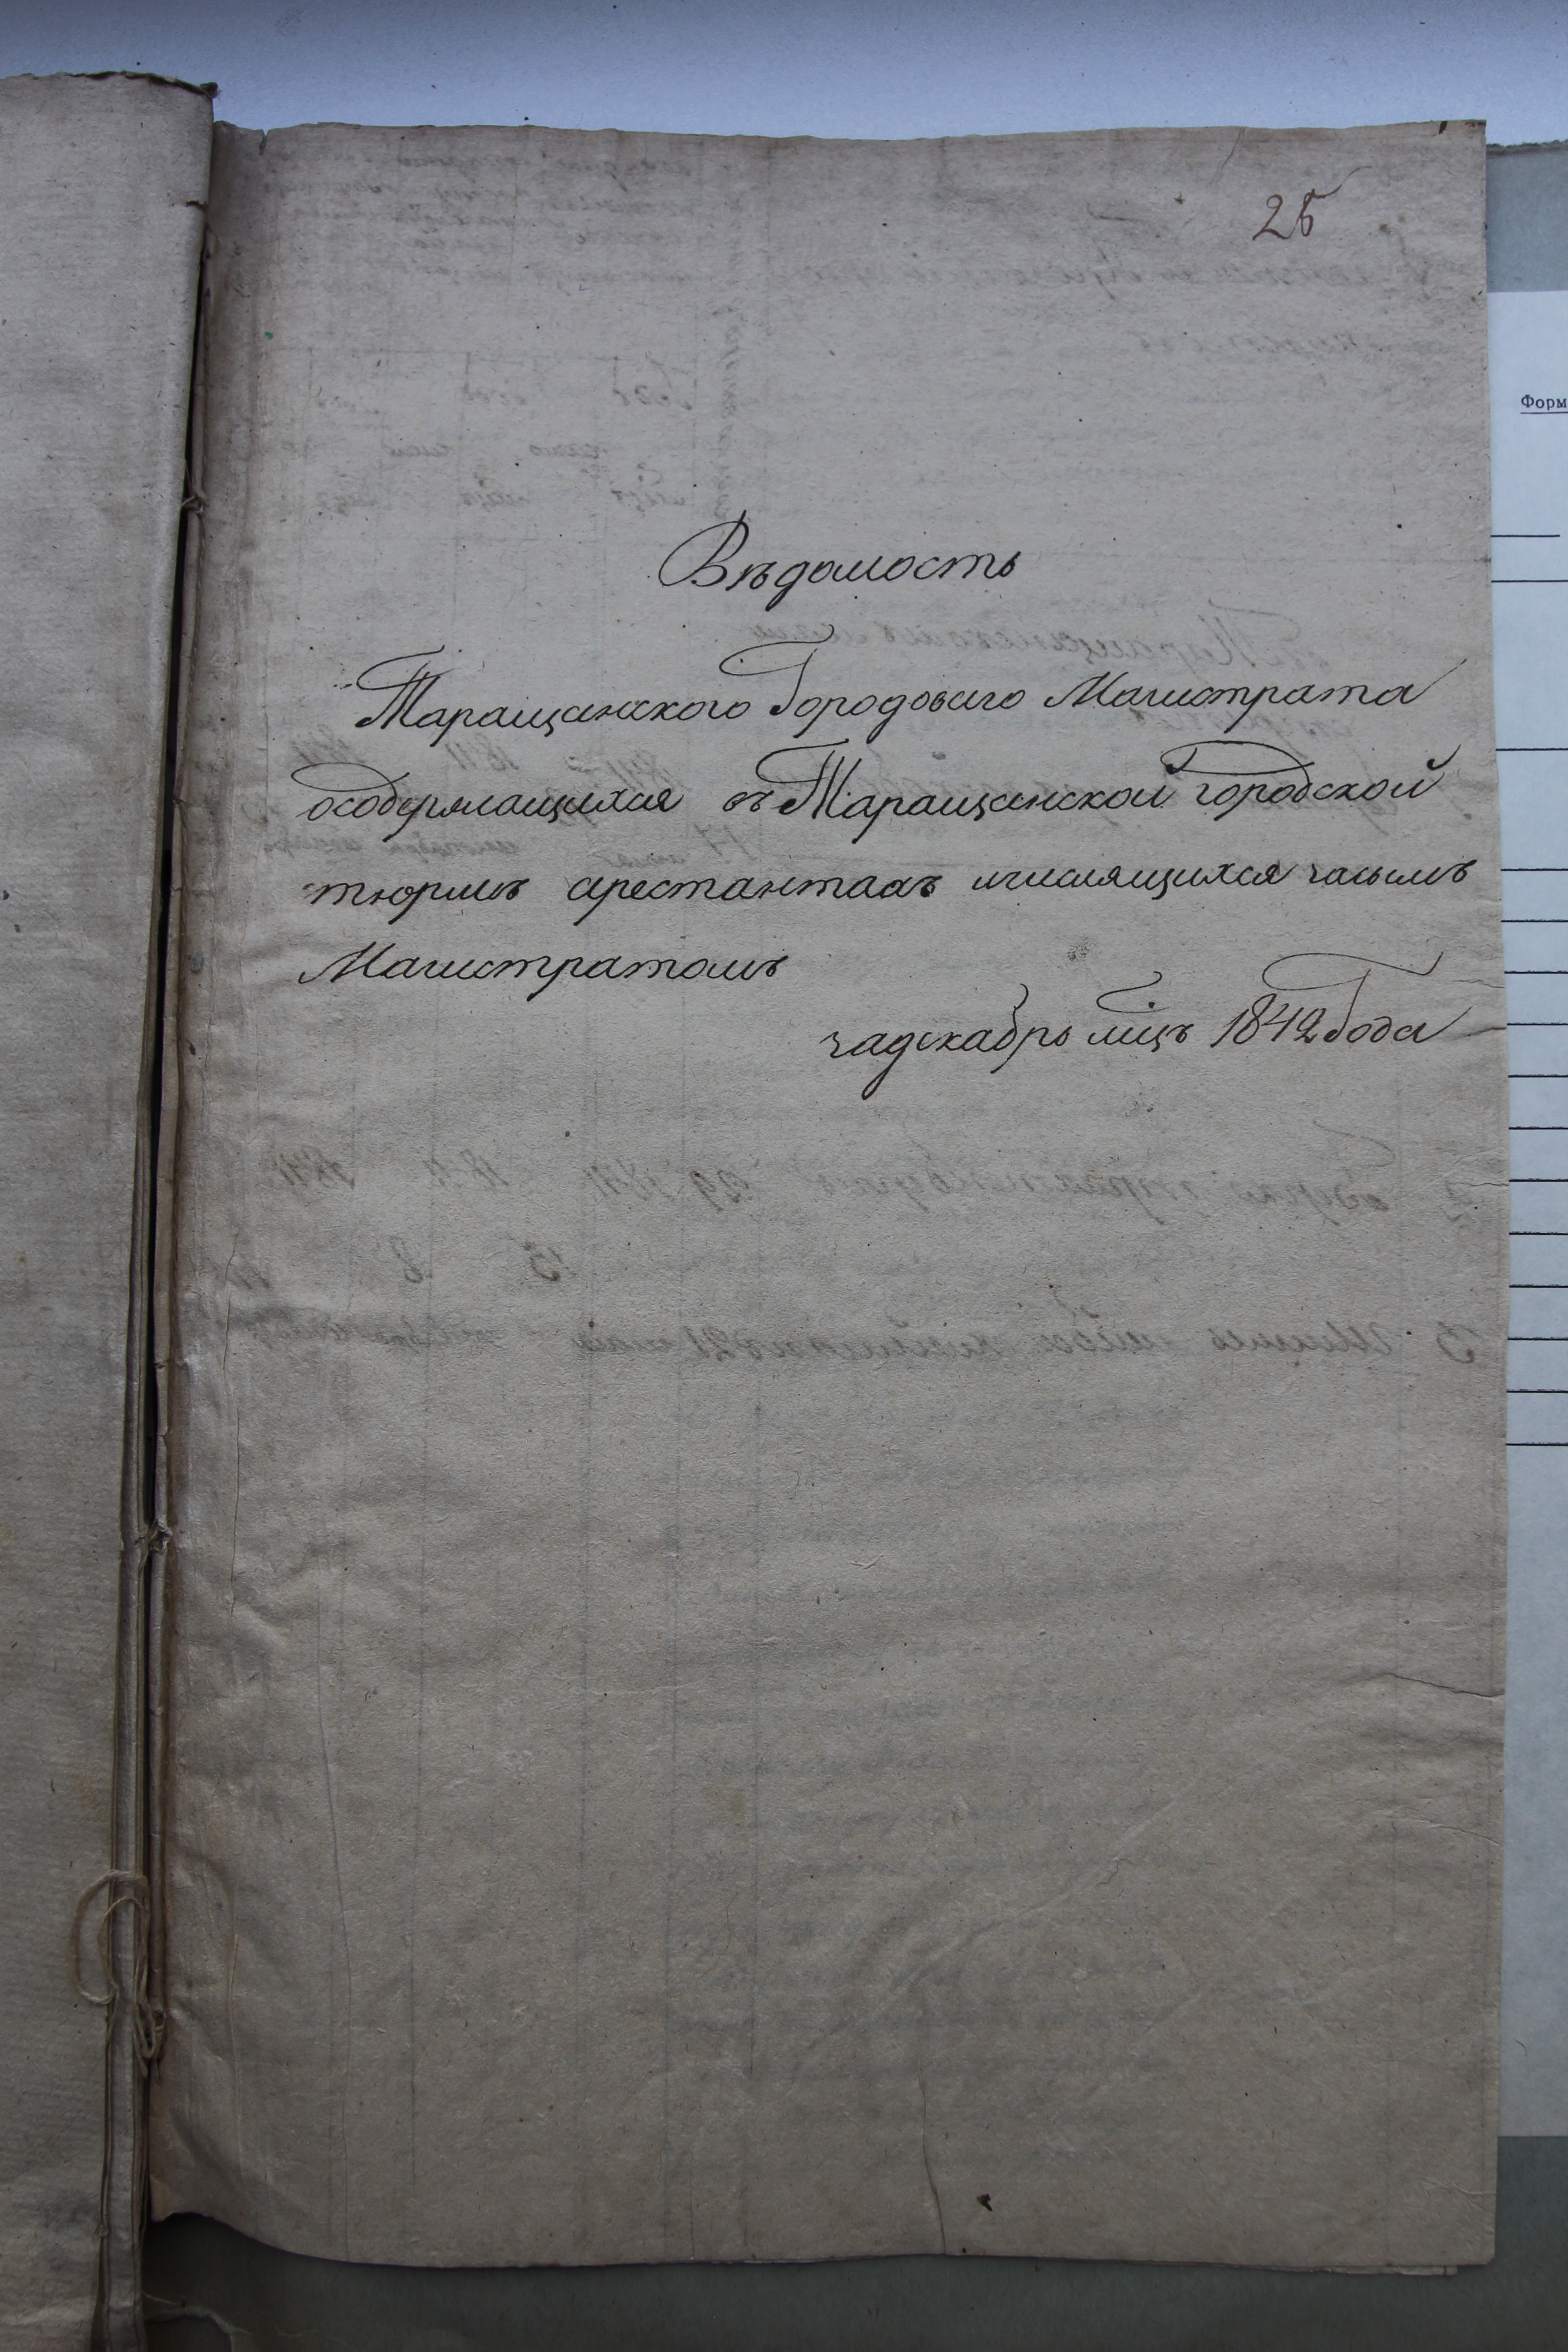 25
Форм
Вѣдомость
Таращанского Городоваго Магистрата
осодержащихся въ Таращанской городской
тюрмѣ арестантахъ ичислящихся засымъ
Магистратомъ
задекабрь мцъ 1842 Года